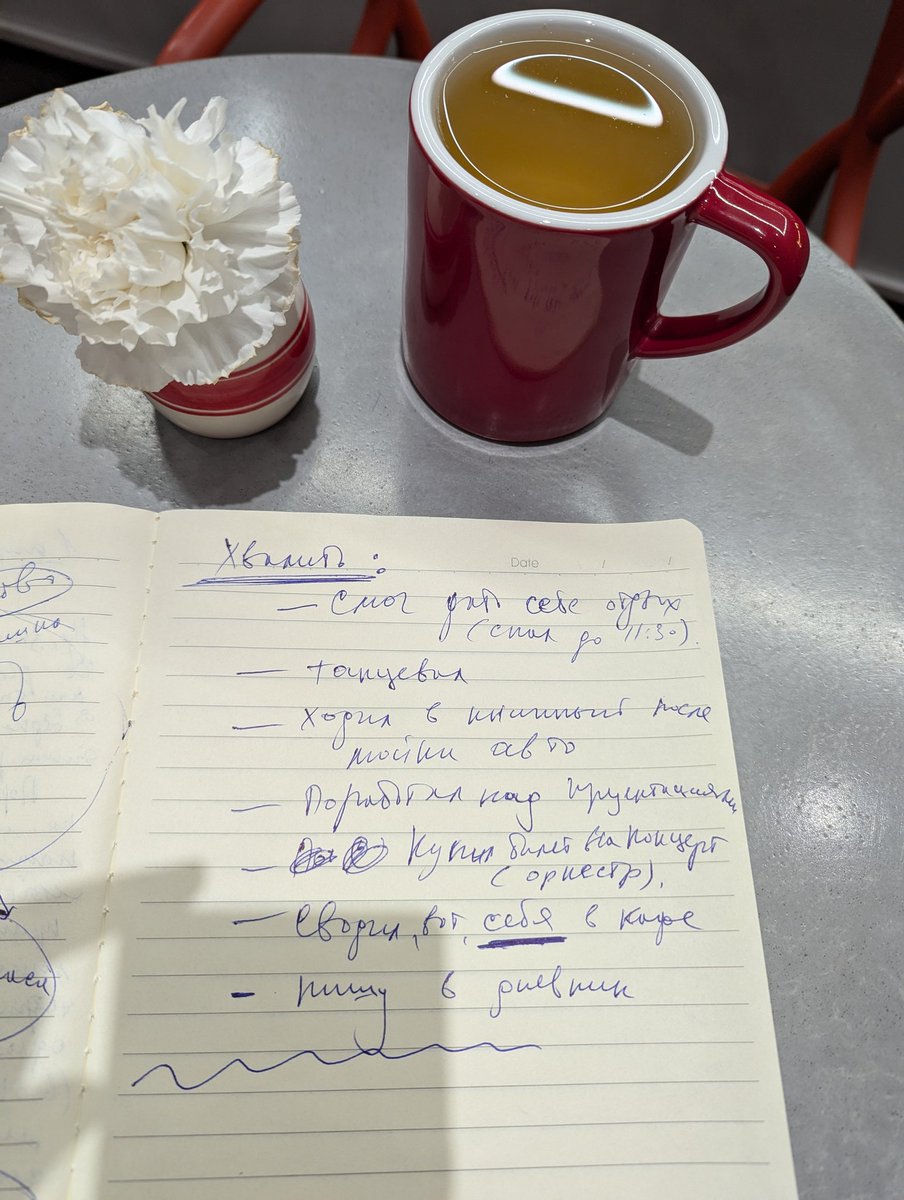 Хвалить:
Date / /
— Смог дать себе отдых
(спал до 11:30).
— танцевал
— Ходил в книжный после
мойки авто
— Поработал над
— Купил билет на концерт
(оркестр).
— Сводил, вот, себя в кафе
- пишу в дневник